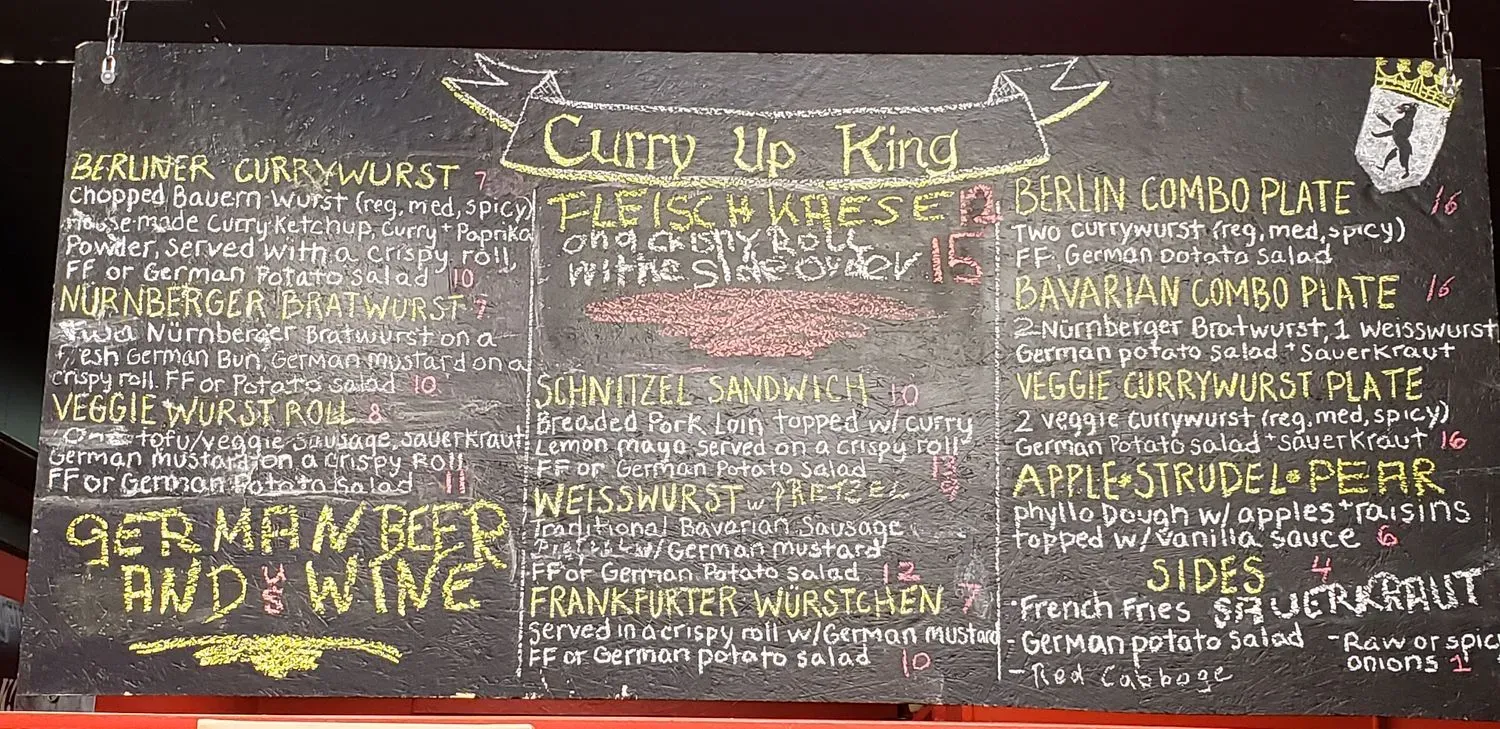 Curry Up King
BERLINER CURRYWURST 7
Chopped Bauern Wurst (reg, med, spicy)
Housemade Curry Ketchup, Curry + Paprika
Powder, Served with a crispy roll
FF or German Potato Salad 10
NÜRNBERGER BRATWURST 7
Two Nürnberger Bratwurst on a
fresh German Bun, German mustard on a
crispy roll. FF or Potato salad 10
VEGGIE WURST ROLL 8
One tofu/veggie sausage, sauerkraut
German mustard on a crispy Roll
FF or German Potato Salad 11
GERMAN BEER
AND US WINE
FLEISCHKAESE 12
on a crispy Roll
withe Side order 15
SCHNITZEL SANDWICH 10
Breaded Pork Loin topped w/curry
Lemon mayo served on a crispy roll
FF or German Potato Salad 13
WEISSWURST w PRETZEL 9
Traditional Bavarian Sausage
w/German mustard
FF or German Potato Salad 12
FRANKFURTER WÜRSTCHEN 7
Served in a crispy roll w/German mustard
FF or German potato salad 10
BERLIN COMBO PLATE 16
Two currywurst (reg, med, spicy)
FF, German potato Salad
BAVARIAN COMBO PLATE 16
2-Nürnberger Bratwurst, 1 Weisswurst
German potato salad + Sauerkraut
VEGGIE CURRYWURST PLATE
2 veggie currywurst (reg, med, spicy)
German Potato salad + sauerkraut 16
APPLE•STRUDEL•PEAR
phyllo Dough w/ apples + raisins
topped w/vanilla sauce 6
SIDES 4
·French Fries SAUERKRAUT
-German potato Salad
-Raw or spic
onions 1
-Red Cabbage